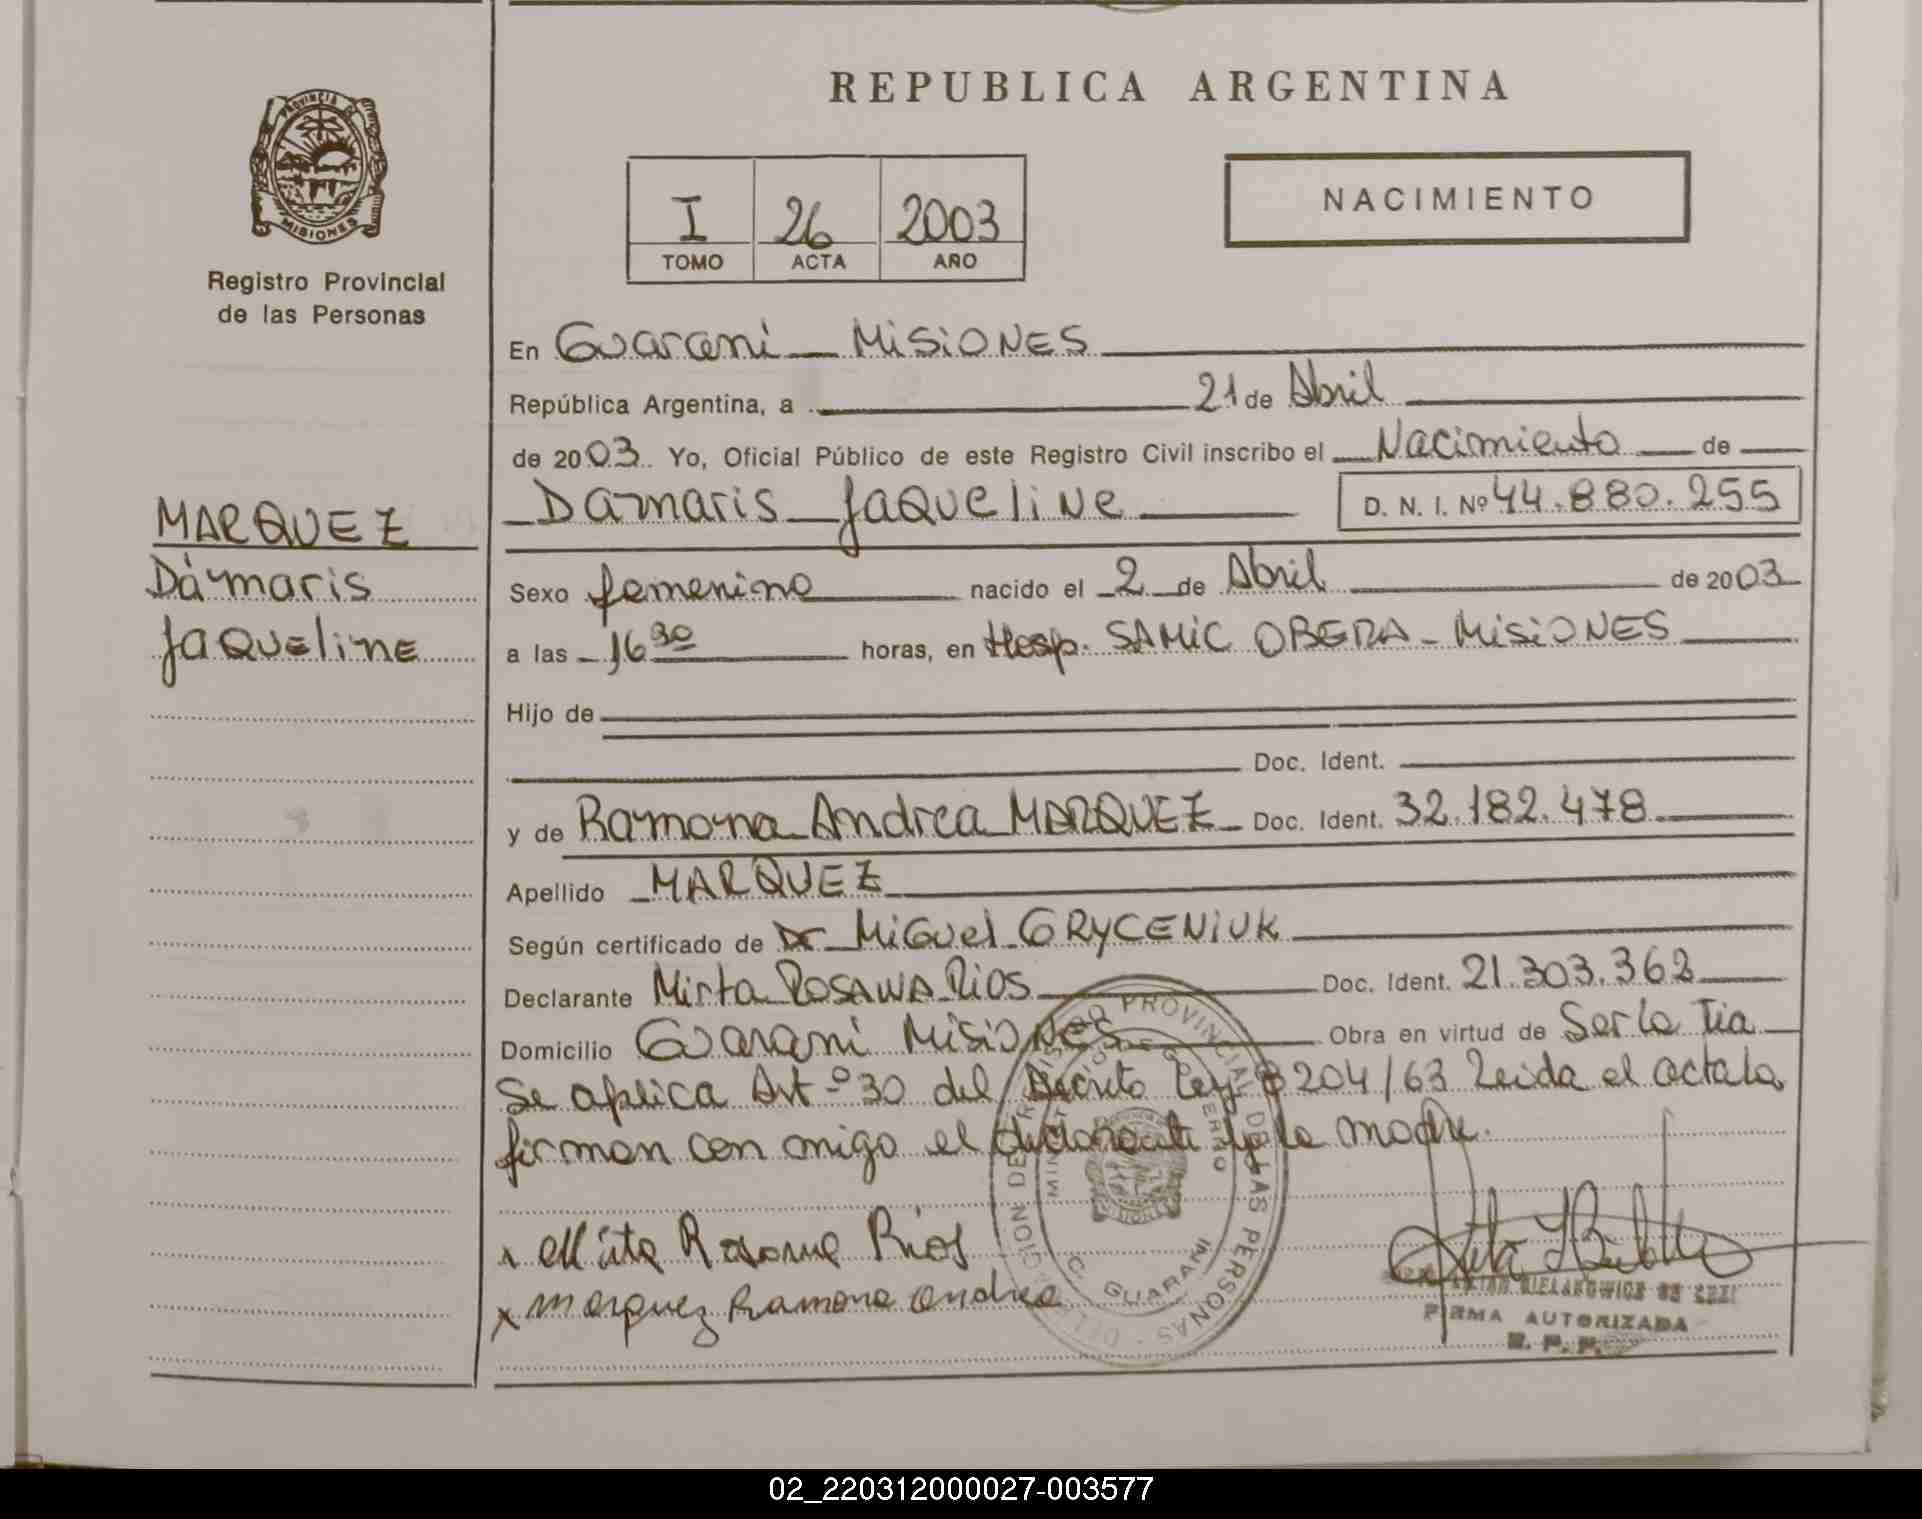 REPUBLICA ARGENTINA
PROVINCIA DE
MISIONES
Registro Provincial
de las Personas
I 26 2003
TOMO ACTA AÑO
NACIMIENTO
En Guarani - MISIONES
República Argentina, a 21 de Abril
de 2003. Yo, Oficial Público de este Registro Civil inscribo el Nacimiento de
Dámaris Jaqueline D. N. I. Nº 44.880.255
MARQUEZ
Dámaris
Jaqueline
Sexo femenino nacido el 2 de Abril de 2003
a las 16 30 horas, en Hosp. SAMIC OBERA - MISIONES
Hijo de
Doc. Ident.
y de Ramona Andrea MARQUEZ Doc. Ident. 32.182.478
Apellido MARQUEZ
Según certificado de Dr Miguel GRYCENIUK
Declarante Mirta ROSANA Rios Doc. Ident. 21.303.362
Domicilio Guarani Misiones Obra en virtud de Ser la Tia
Se aplica Art º 30 del Decreto Ley 8204/63 Leida el acta la
firman con migo el declarante y la madre.
Mirta Rosana Rios
x Marquez Ramona Andrea
DELEGACION DE REGISTRO PROVINCIAL DE LAS PERSONAS
C. GUARANI
FIRMA AUTORIZADA
R. P. P.
02_220312000027-003577